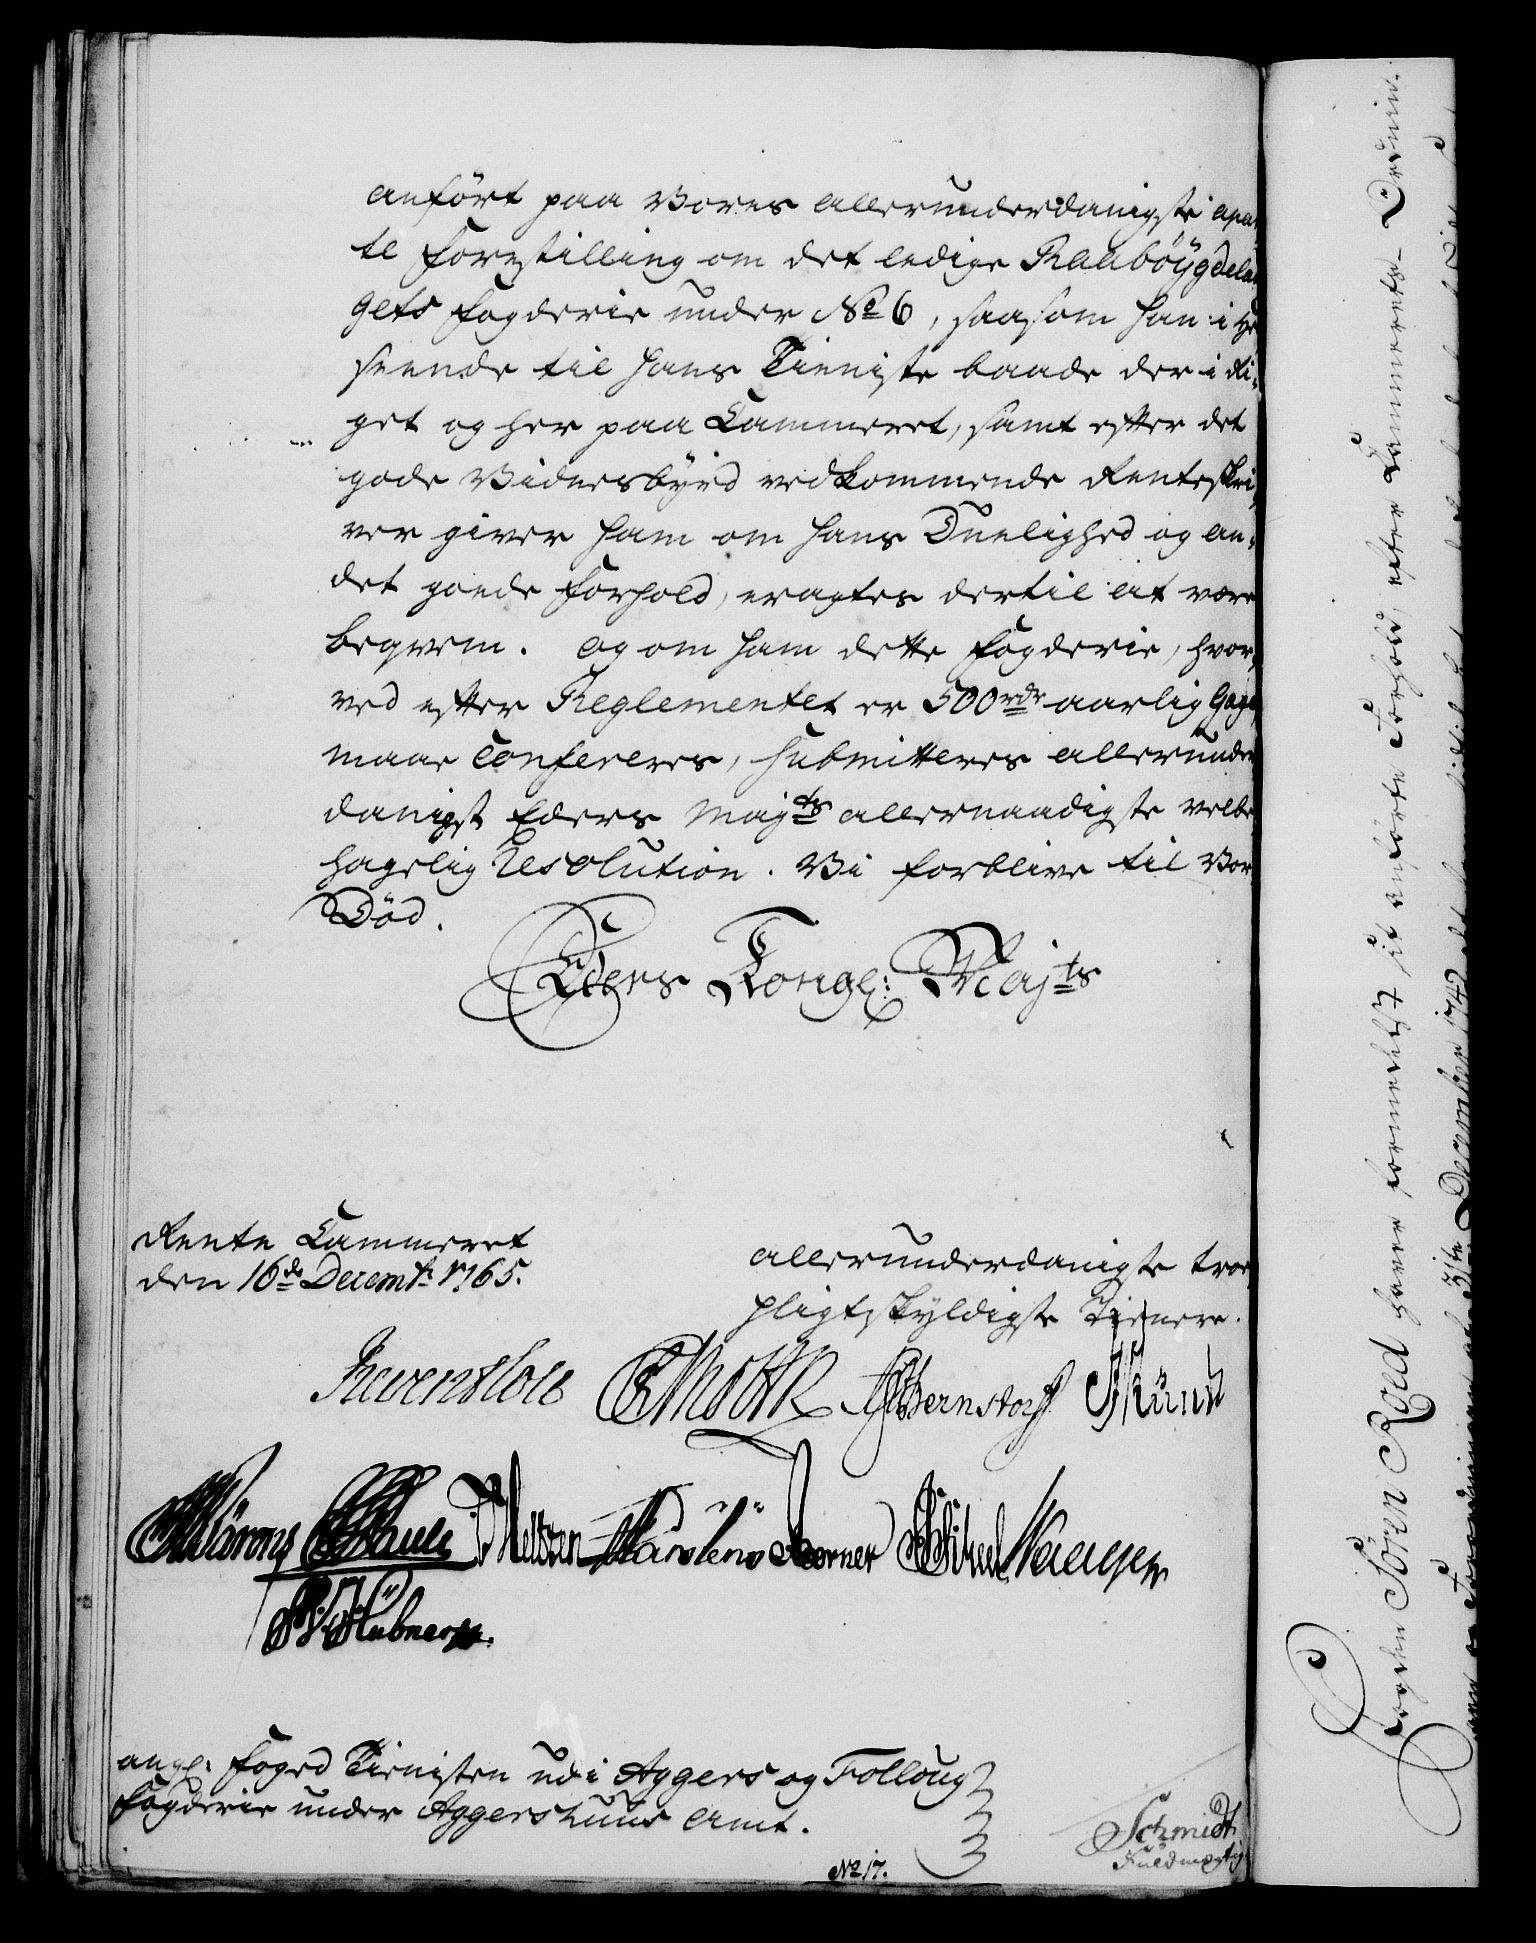 anført paa Vores allerunderdanigste apar
te Forestilling om det ledige Raabøygdela
gets Fogderie under No 6, saasom han i He
seende til hans Tieniste baade der i Ri,
get og her paa Cammeret, samt efter det
gode Vidnesbyrd vedkommende Renteskri,
ver giver ham om hans Duelighed og an,
det goede Forhold, eragtes dertil at være
beqvem. Og om ham dette Fogderie, hvor,
ved efter Reglementet er 500 rdr aarlig Gage
maae Confereres, submitteres allerunder
danigst Eders Majts allernaadigste velbe
hagelig Resolution. Vi forblive til Vor
Død.
Eders Kongl: Majts
Rente Cammeret
den 16de Decembr: 1765.
allerunderdanigste troe
pligtskyldigste Tienere.
Reventlow Thott Bernstorff
Pauli Meltzen Karstens Hoerner
Hübner
angl: Foged Tienisten udi Aggers og Folloug
Fogderie under Aggershuus Amt.
No 17.
Schmidt
Fuldmægtig
Fogden Søren Roed haver formedelst sit anførte Forhold, efter Cammerets Ordrin,
December 1742